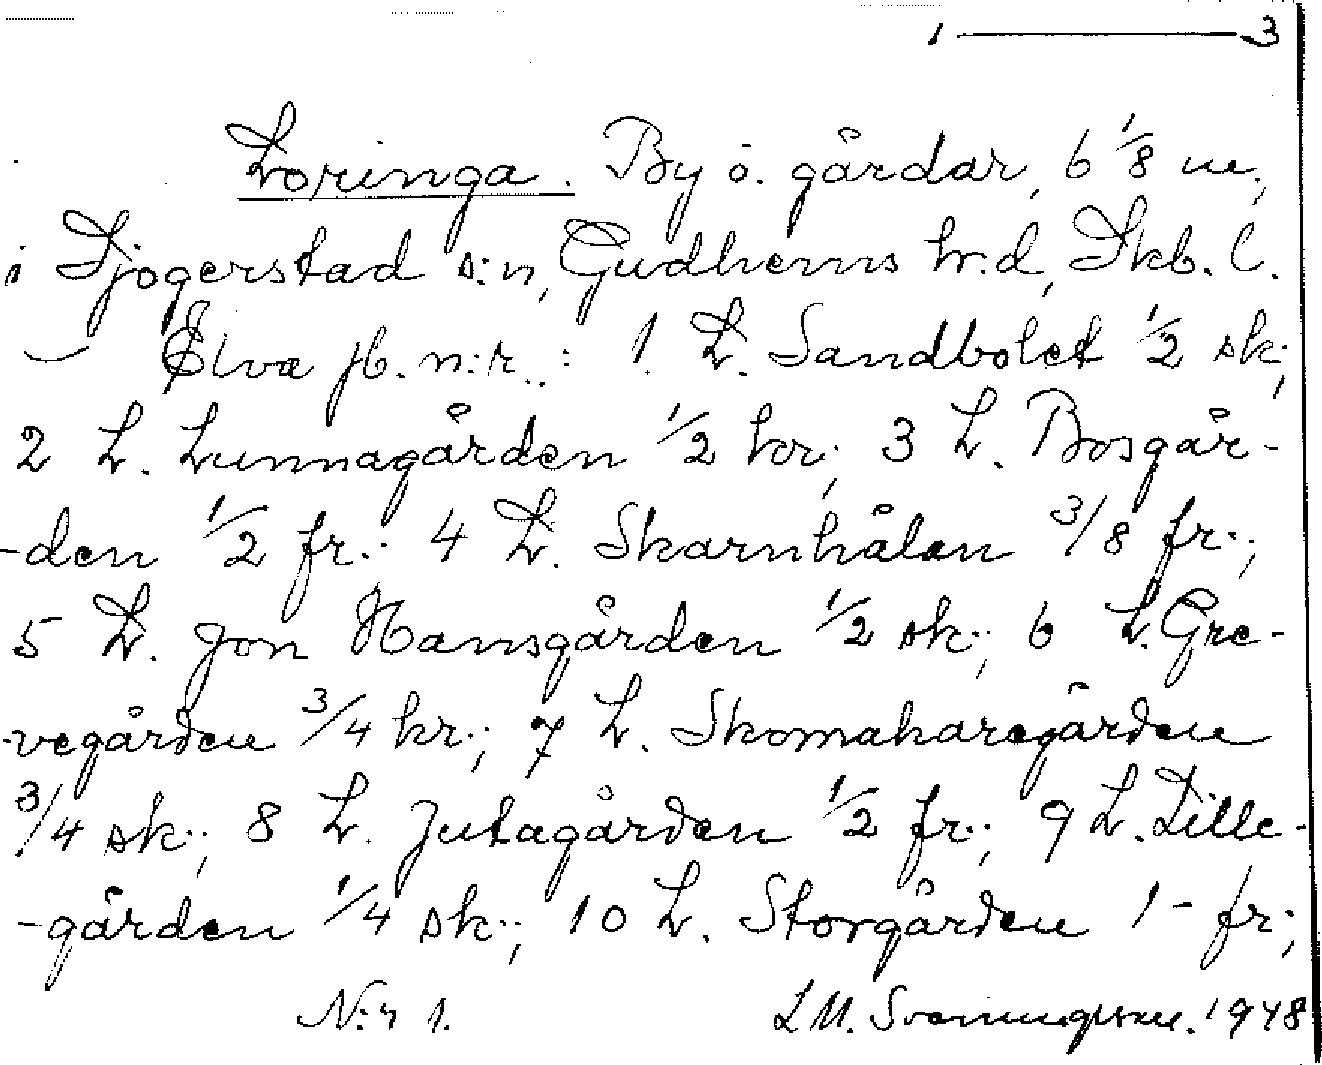 1 — 3
Loringa. By o. gårdar, 6 1/8 m,
i Sjogerstad s:n, Gudhems hr.d, Skb. l.
— Elva jb. n:r.: 1 L. Sandbolet 1/2 sk.;
2 L. Lunnagården 1/2 kr.; 3 L. Bosgår-
-den 1/2 fr.: 4 L. Skarnhålan 3/8 fr.;
5 L. Jon Hansgården 1/2 sk.; 6 L. Gre-
-vegården 3/4 kr.; 7 L. Skomakaregården
3/4 sk.; 8 L. Jutagården 1/2 fr.; 9 L. Lille-
-gården 1/4 sk.; 10 L. Storgården 1 - fr.;
N:r 1. L M. Svenungsson. 1948